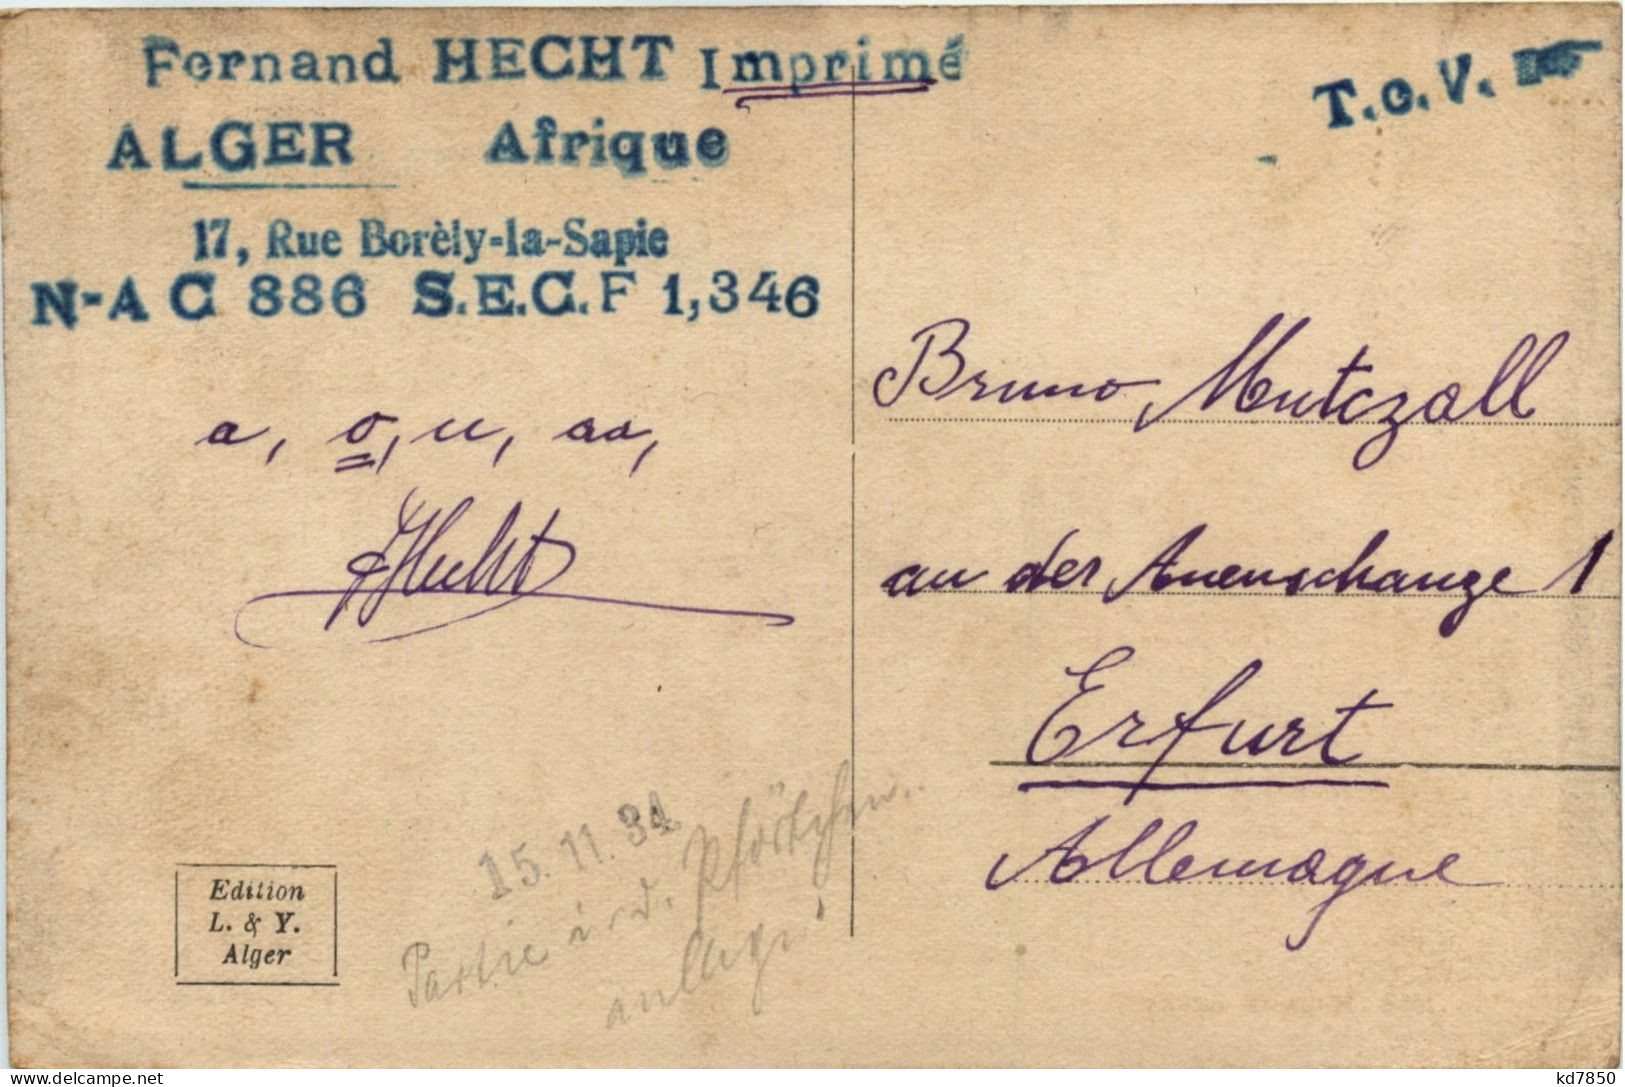 Fernand HECHT Imprimé
ALGER Afrique
17, Rue Borèly-la-Sapie
N-A C 886 S.E.C.F 1,346
T.C.V.
a, o, u, aa,
FHecht
Bruno Mutczall
an der Auenschanze 1
Erfurt
Allemagne
15.11.34
Partie i. d.
anlage
Edition
L. & Y.
Alger
kd7850